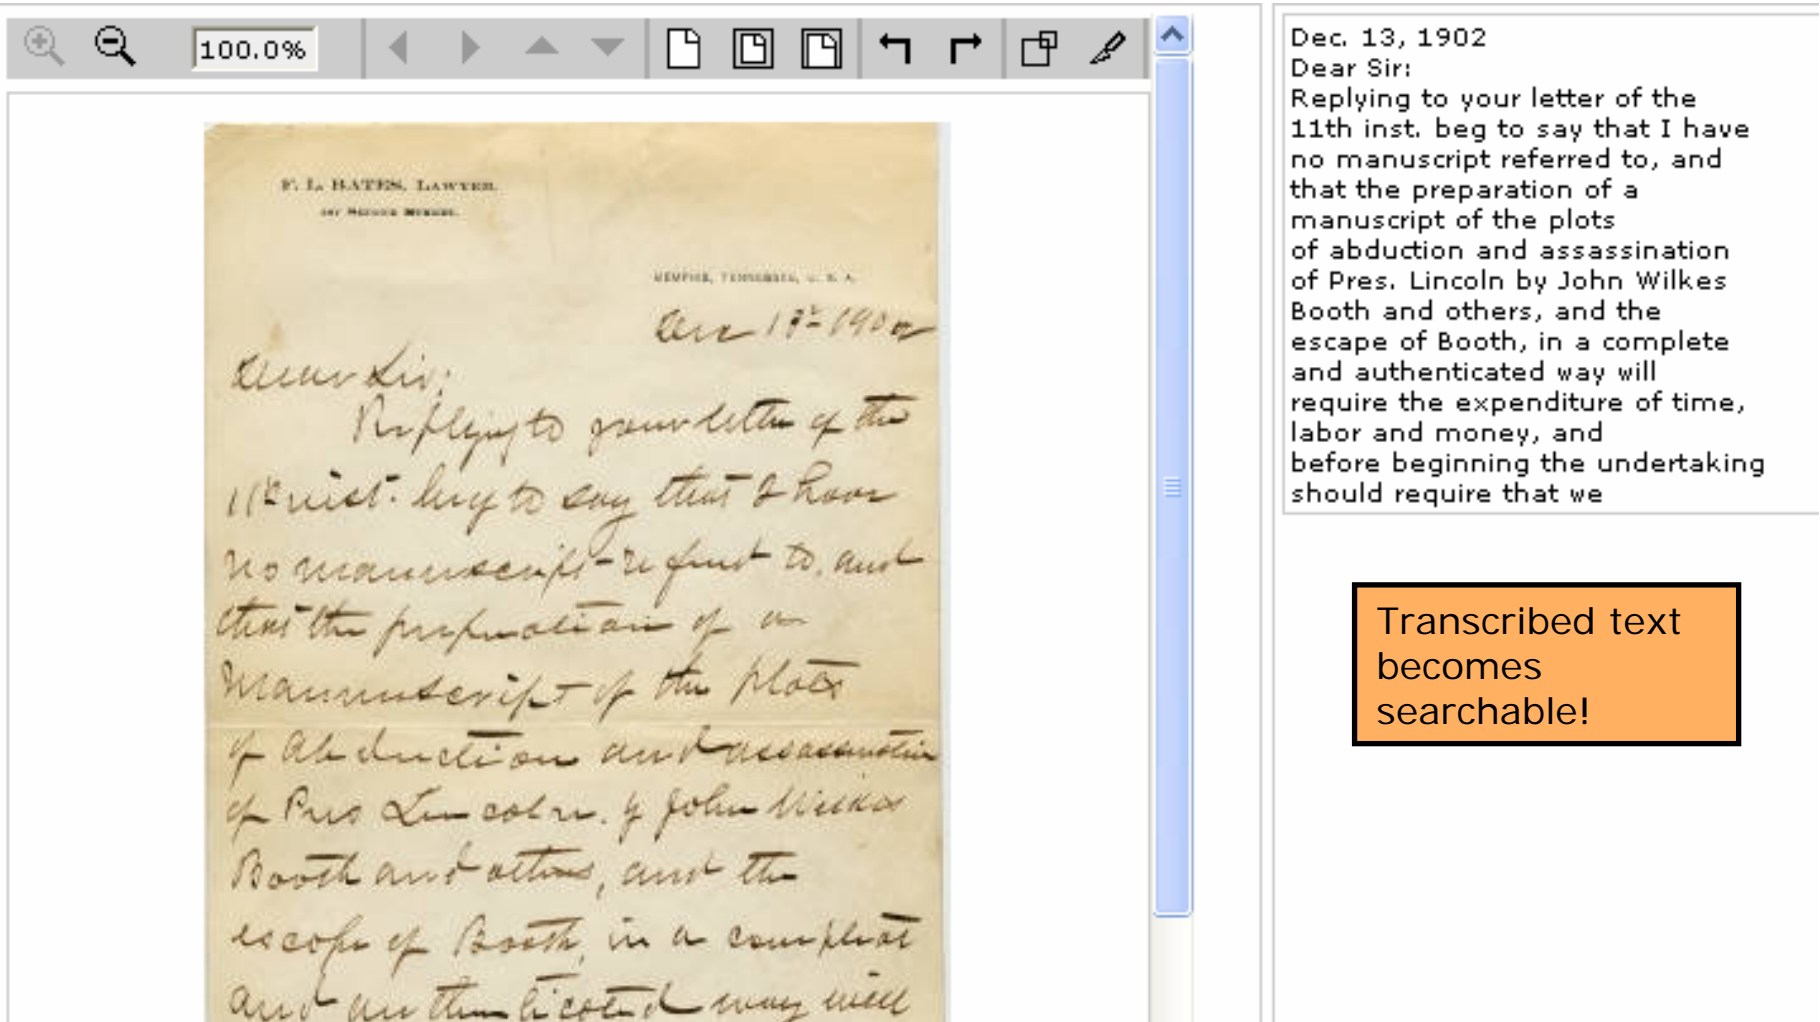 100.0%
F. L. BATES, LAWYER.
SECOND STREET.
MEMPHIS, TENNESSEE, U. S. A.
Dec 13th 1902
Dear Sir:
Replying to your letter of the
11th inst. beg to say that I have
no manuscript referred to, and
that the preparation of a
Manuscript of the plots
of abduction and assassination
of Pres Lincoln. by John Wilkes
Booth and others, and the
escape of Booth, in a compleat
and authenticated way will
Dec. 13, 1902
Dear Sir:
Replying to your letter of the
11th inst. beg to say that I have
no manuscript referred to, and
that the preparation of a
manuscript of the plots
of abduction and assassination
of Pres. Lincoln by John Wilkes
Booth and others, and the
escape of Booth, in a complete
and authenticated way will
require the expenditure of time,
labor and money, and
before beginning the undertaking
should require that we
Transcribed text
becomes
searchable!